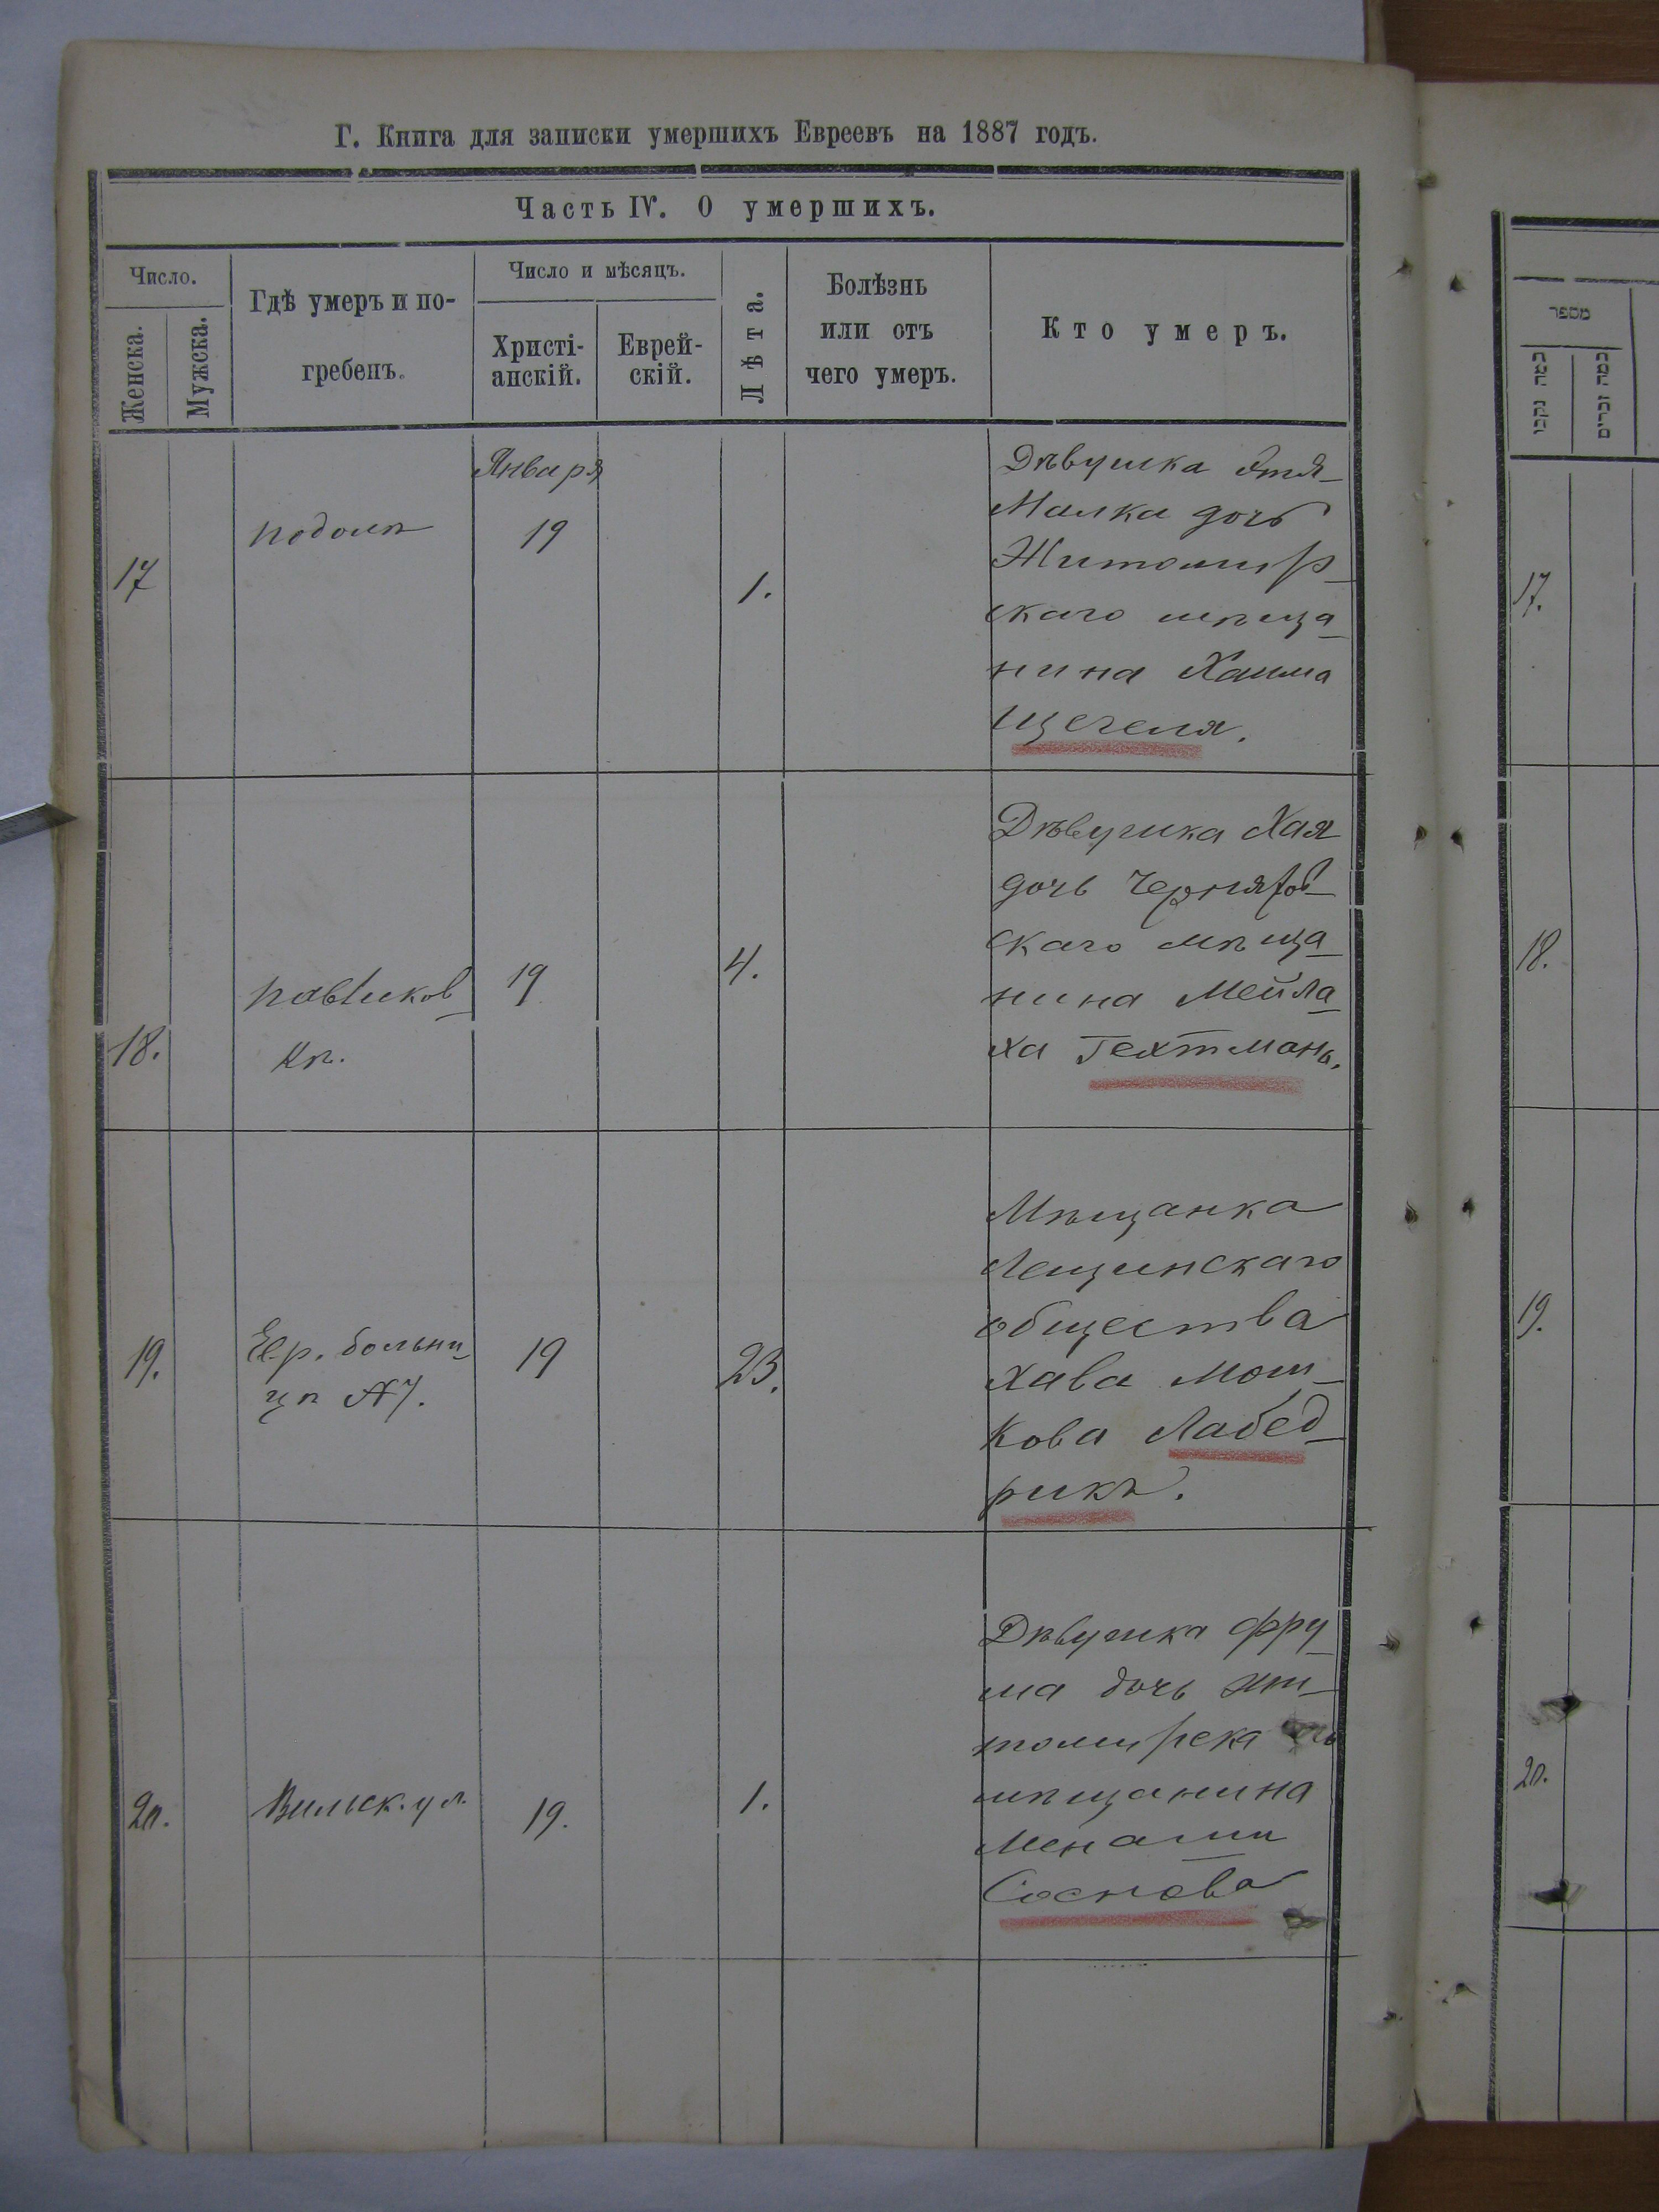 Г. Книга для записки умершихъ Евреевъ на 1887 годъ.
Часть IV. О умершихъ.
Число.
Женска.
Мужска.
Гдѣ умеръ и по-
гребенъ.
Число и мѣсяцъ.
Христі-
анскій.
Еврей-
скій.
Лѣта.
Болѣзнь
или отъ
чего умеръ.
Кто умеръ.
17
подолѣ
Января
19
1.
Дѣвушка Этя-
Малка дочь
Житомир-
скаго мѣща-
нина Хаима
Щегеля.
18.
павликов-
кѣ.
19
4.
Дѣвушка Хая
дочь Черняхов-
скаго мѣща-
нина Мейла-
ха Гехтмань.
19.
Евр. больни-
цѣ
19
23.
Мѣщанка
Лещинскаго
общества
Хава Мош-
кова Лабед-
рикъ.
20.
Вильск. ул.
19.
1.
Дѣвушка Фру-
ма дочь жи-
томирска
мѣщанина
Менаши
Соснова
מספר
כמה נקבו
כמה זכרים
17.
18.
19.
20.